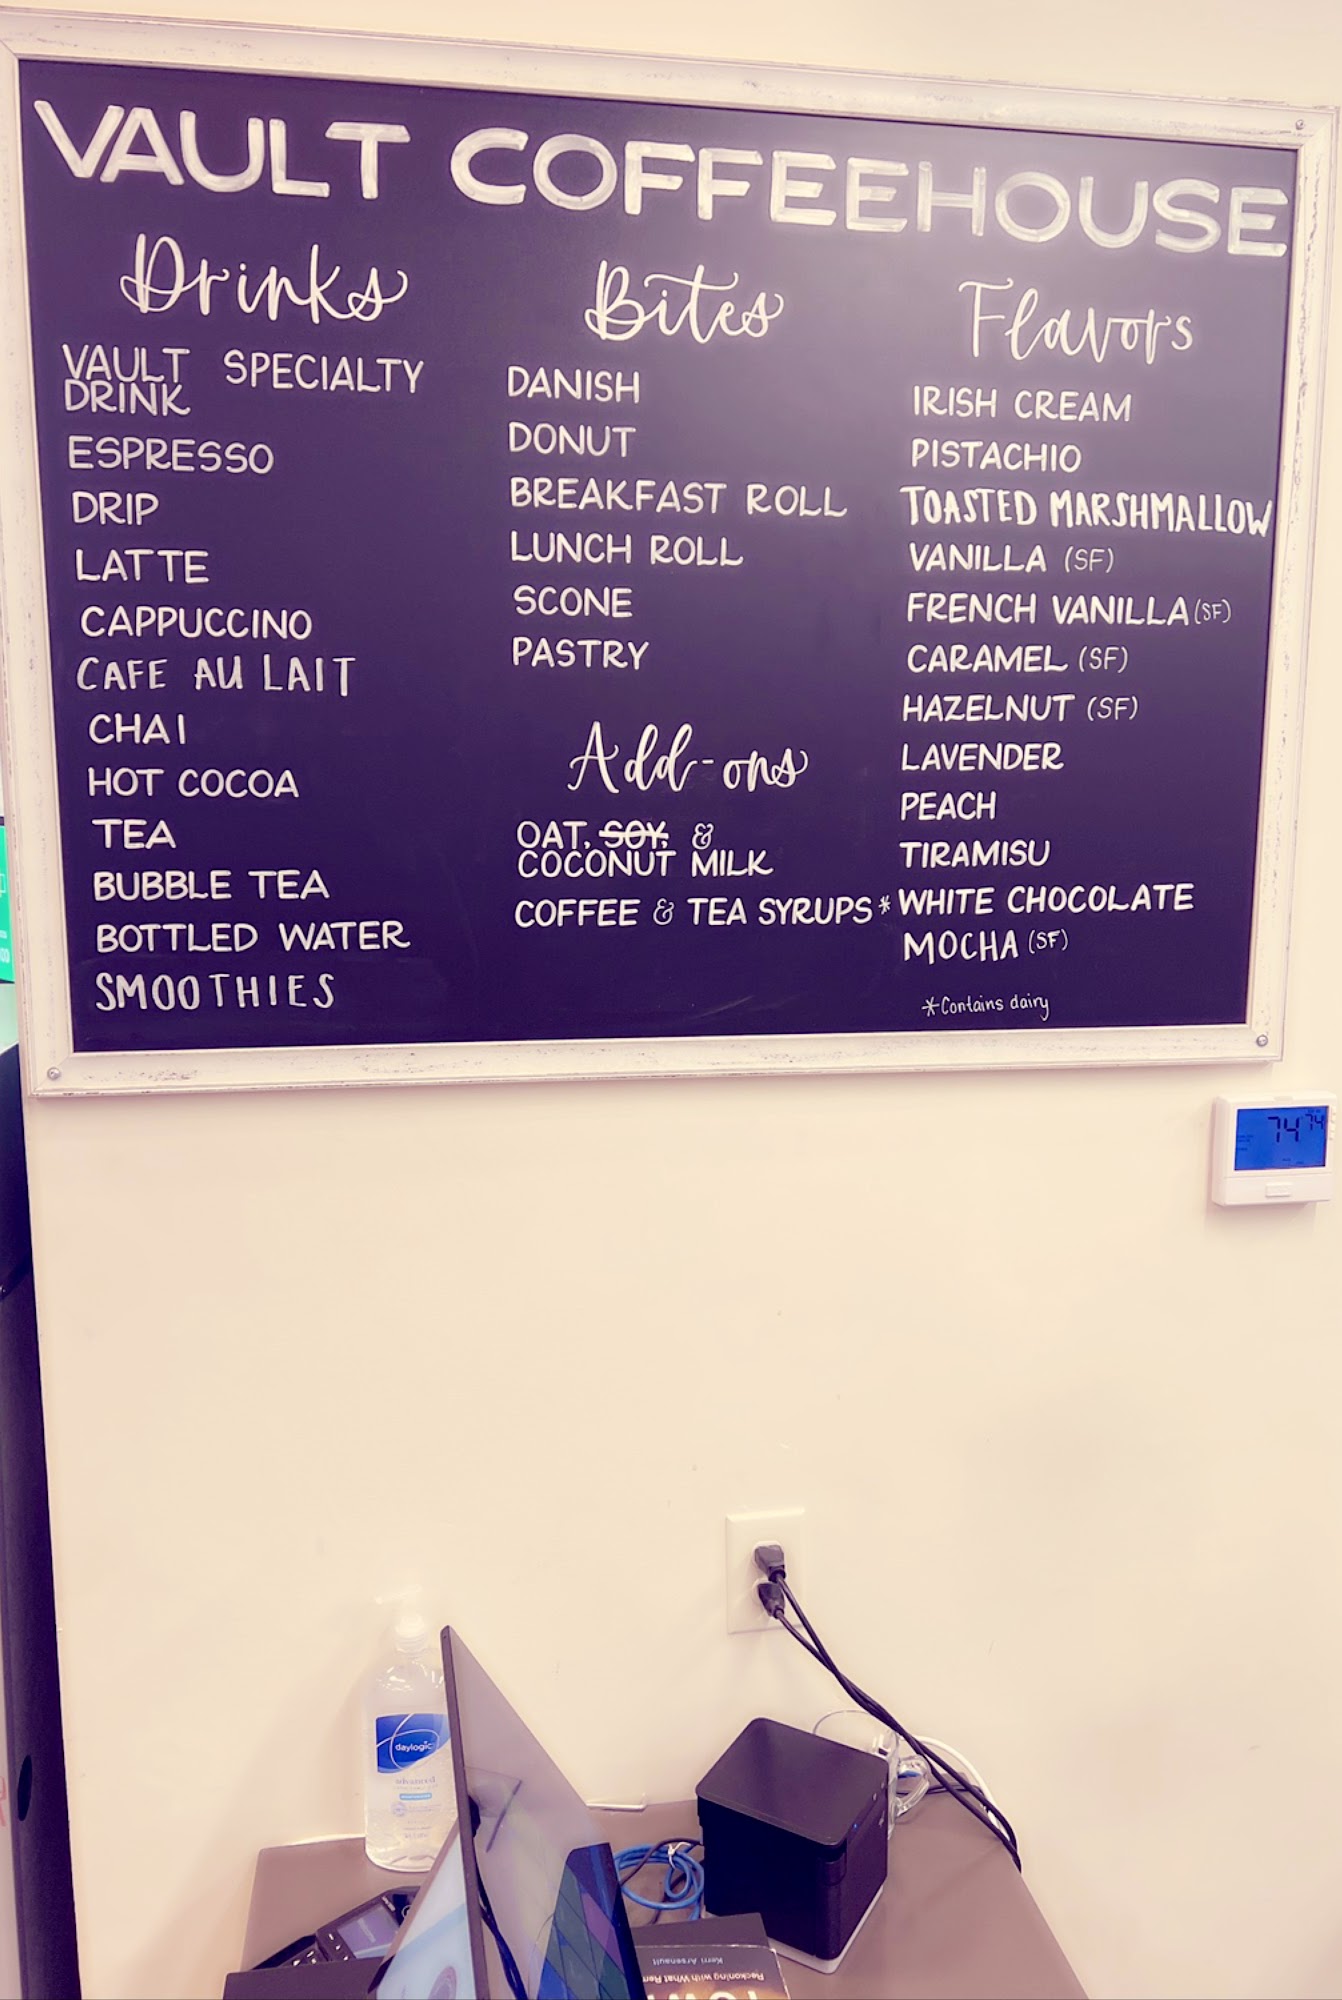 VAULT COFFEEHOUSE
Drinks
VAULT SPECIALTY
DRINK
ESPRESSO
DRIP
LATTE
CAPPUCCINO
CAFE AU LAIT
CHAI
HOT COCOA
TEA
BUBBLE TEA
BOTTLED WATER
SMOOTHIES
Bites
DANISH
DONUT
BREAKFAST ROLL
LUNCH ROLL
SCONE
PASTRY
Add-ons
OAT, SOY, &
COCONUT MILK
COFFEE & TEA SYRUPS
Flavors
IRISH CREAM
PISTACHIO
TOASTED MARSHMALLOW
VANILLA (SF)
FRENCH VANILLA (SF)
CARAMEL (SF)
HAZELNUT (SF)
LAVENDER
PEACH
TIRAMISU
*WHITE CHOCOLATE
MOCHA (SF)
*Contains dairy
74 74
daylogic
advanced
Kerri Arsenault
Reckoning with What